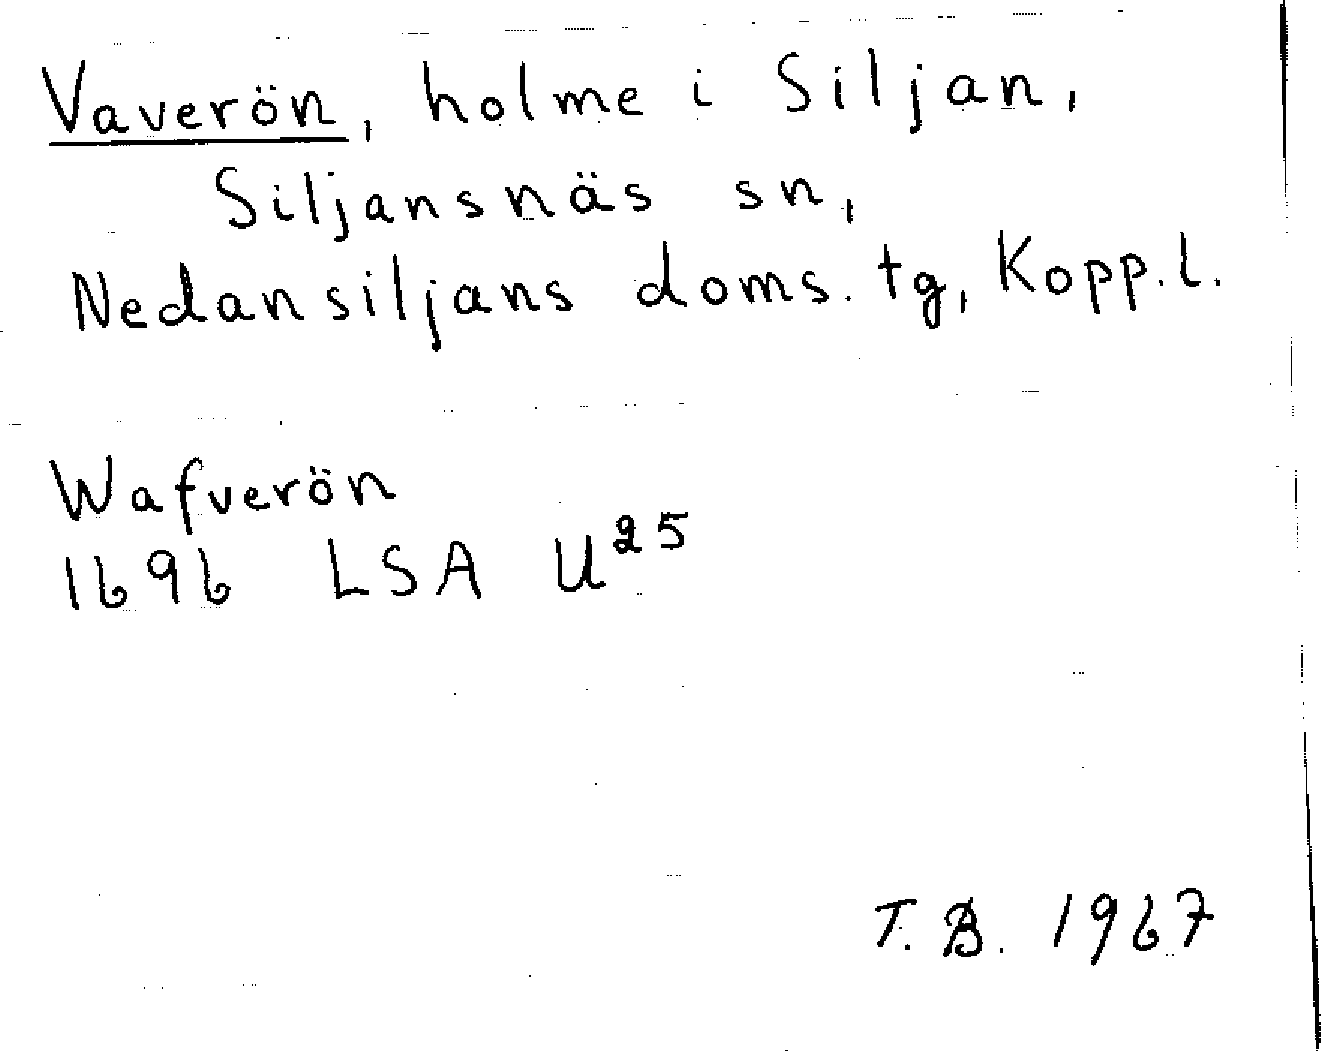 Vaverön, holme i Siljan,
Siljansnäs sn,
Nedansiljans doms. tg, Kopp. l.
Wafverön
1696 LSA U²⁵
T. B. 1967